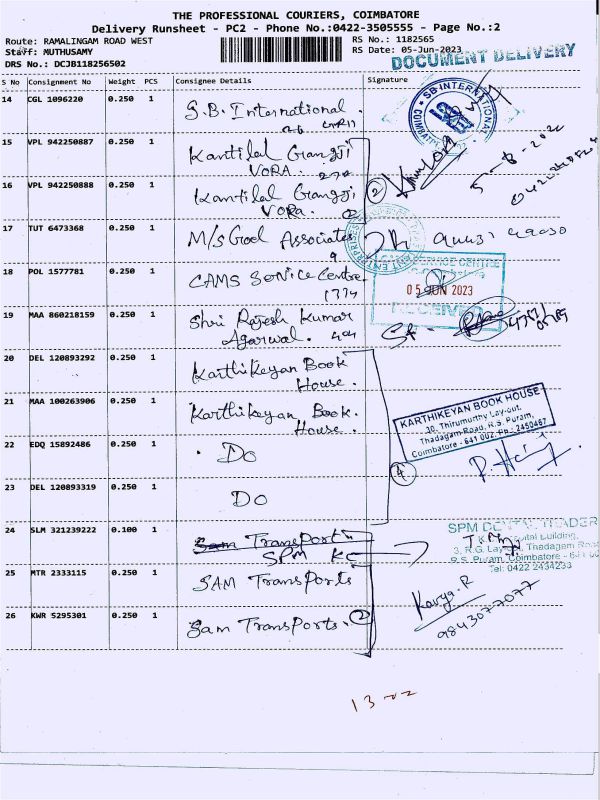 THE PROFESSIONAL COURIERS, COIMBATORE
Delivery Runsheet - PC2 - Phone No.:0422-3505555 - Page No.:2
Route: RAMALINGAM ROAD WEST
RS No.: 1182565
Staff: MUTHUSAMY
RS Date: 05-Jun-2023
DRS No.: DCJB118256502
DOCUMENT DELIVERY
S No Consignment No Weight PCS Consignee Details Signature
14 CGL 1096220 0.250 1 S.B. International.
SB INTERNATIONAL
15 VPL 942250887 0.250 1 Kantilal Gangji
VORA.
16 VPL 942250888 0.250 1 Kantilal Gangji
VORA.
2
17 TUT 6473368 0.250 1 M/s Goel Associates
18 POL 1577781 0.250 1 CAMS Service Centre.
1774
SERVICE CENTRE
05 JUN 2023
RECEIVED
19 MAA 860218159 0.250 1 Shri Rajesh Kumar
Agarwal.
20 DEL 120893292 0.250 1 Karthikeyan Book
House.
21 MAA 100263906 0.250 1 Karthikeyan Book.
House.
KARTHIKEYAN BOOK HOUSE
30, Thirumurthy Lay-out,
Thadagam Road, R.S. Puram,
Coimbatore - 641 002. Ph: 2450467
22 EDQ 15892486 0.250 1 Do
4
23 DEL 120893319 0.250 1 Do
24 SLM 321239222 0.100 1 Sam Transport
SPM
SPM DENTAL TRADER
Building,
3, R.G. Layout, Thadagam Road
R.S. Puram, Coimbatore - 641 00
Tel: 0422 2434233
25 MTR 2333115 0.250 1 SAM Transports
26 KWR 5295301 0.250 1 Sam Transports. 2
Kavya. R
9843077077
13